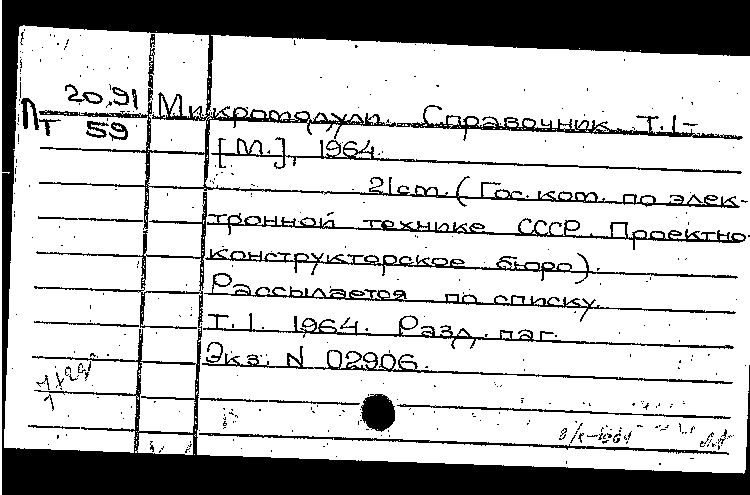 20.91 Микромодули. Справочник. Т.1-
Пт 59
[М.], 1964.
21см. (Гос. ком. по элек-
тронной технике СССР. Проектно-
конструкторское бюро).
Рассылается по списку.
Т.1. 1964. Разд. паг.
Экз. N 02906.